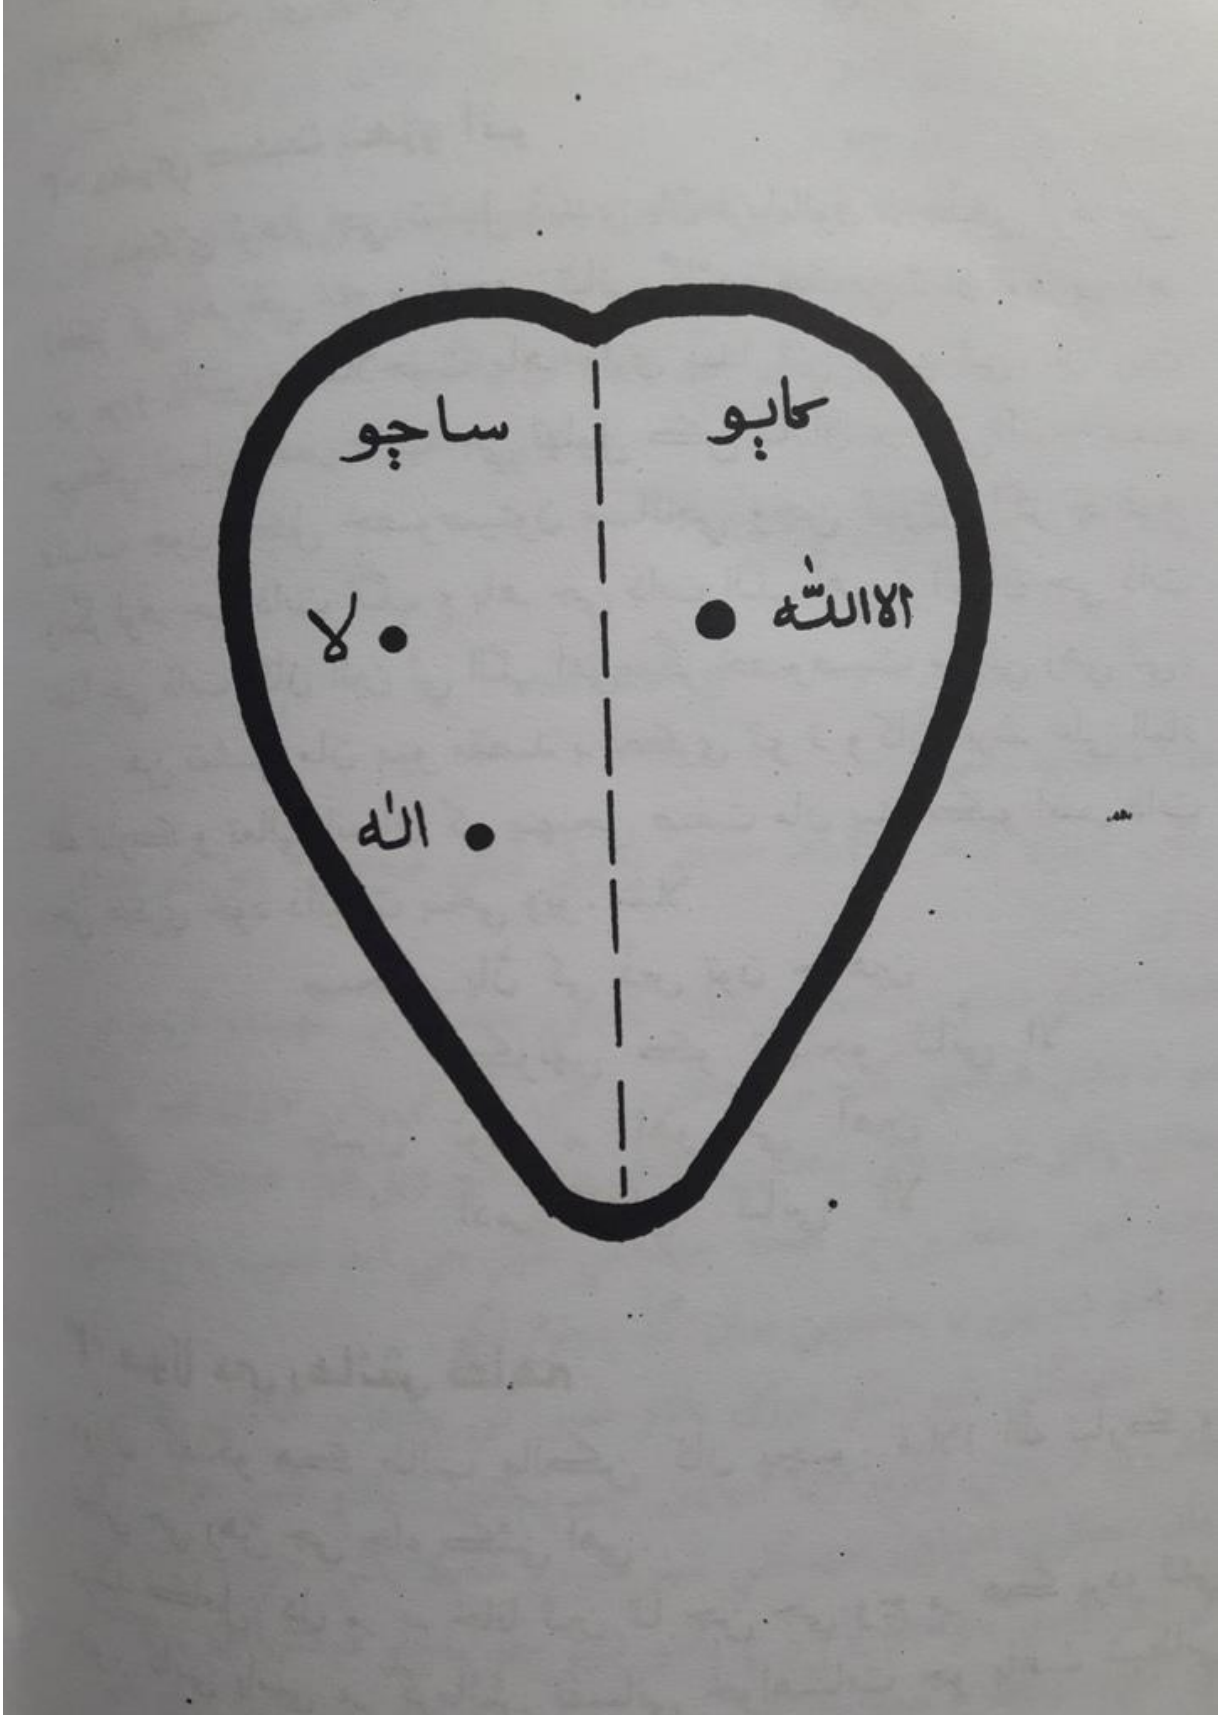 کاٻو ساڄو
الاالله لا
اله